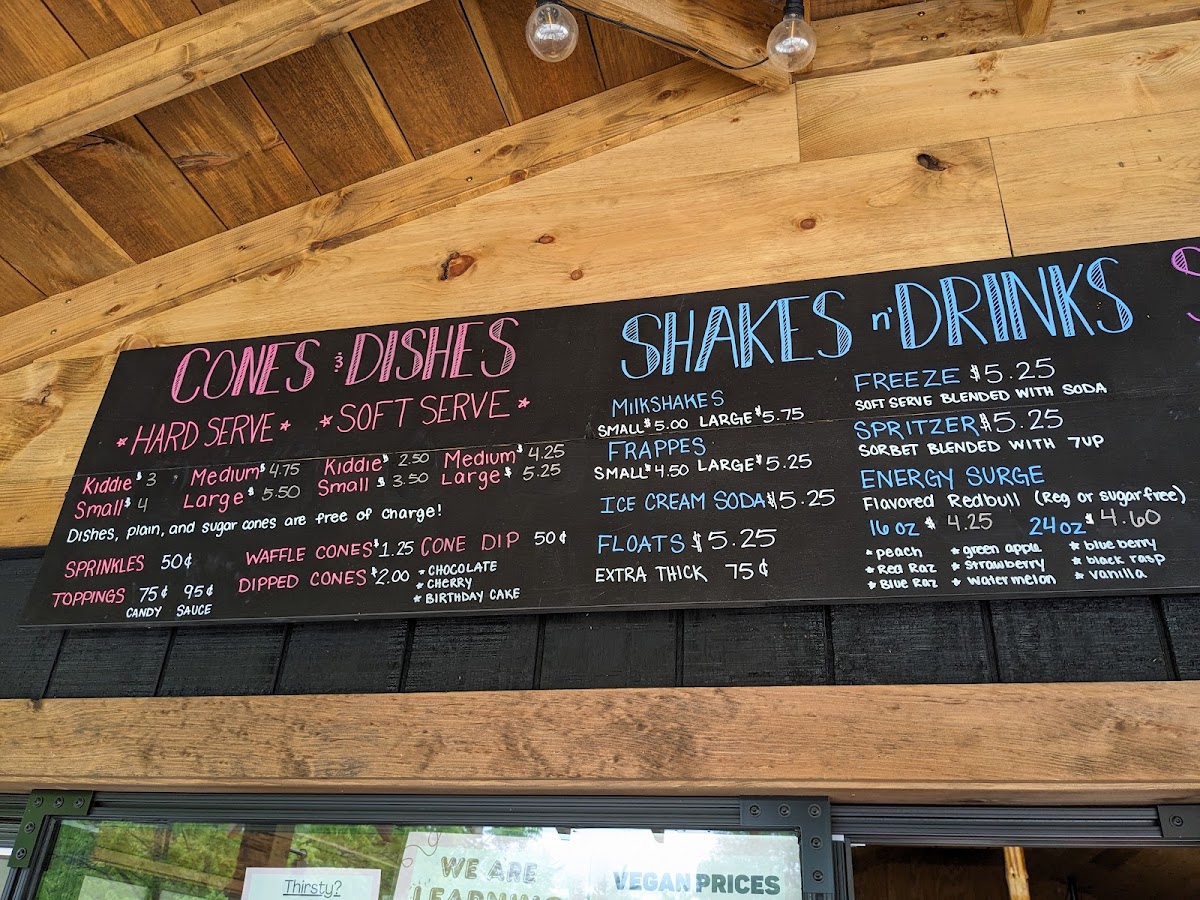 CONES & DISHES
* HARD SERVE *
* SOFT SERVE *
Kiddie $3 Medium $4.75
Small $4 Large $5.50
Kiddie $2.50 Medium $4.25
Small $3.50 Large $5.25
Dishes, plain, and sugar cones are free of charge!
SPRINKLES 50¢
TOPPINGS 75¢ 95¢
CANDY SAUCE
WAFFLE CONES $1.25
DIPPED CONES $2.00
CONE DIP 50¢
* CHOCOLATE
* CHERRY
* BIRTHDAY CAKE
SHAKES n' DRINKS
MILKSHAKES
SMALL $5.00 LARGE $5.75
FRAPPES
SMALL $4.50 LARGE $5.25
ICE CREAM SODA $5.25
FLOATS $5.25
EXTRA THICK 75¢
FREEZE $5.25
SOFT SERVE BLENDED WITH SODA
SPRITZER $5.25
SORBET BLENDED WITH 7UP
ENERGY SURGE
Flavored Redbull (Reg or sugarfree)
16oz $4.25 24oz $4.60
* peach * green apple * blue berry
* Red Raz * Strawberry * black rasp
* Blue Raz * watermelon * vanilla
Thirsty?
WE ARE
LEARNING
VEGAN PRICES